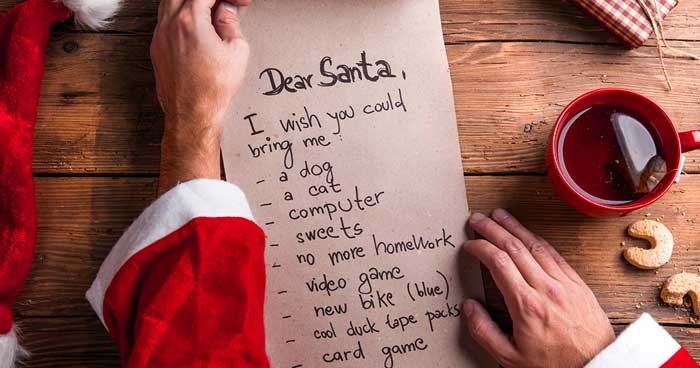 Dear Santa,
I wish you could
bring me:
- a dog
- a cat
- computer
- sweets
- no more homework
- video game
- new bike (blue)
- cool duck tape packs
- card game